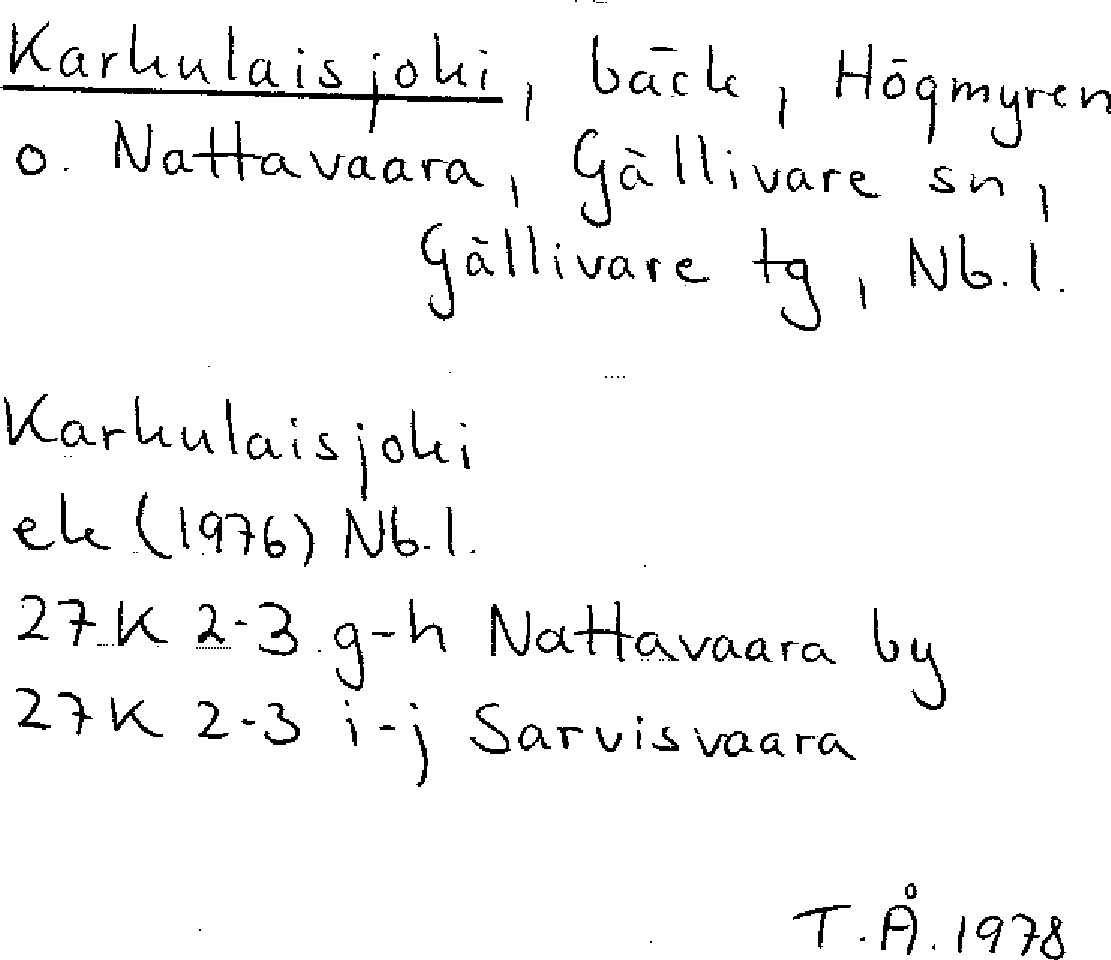 Karkulaisjoki, bäck, Högmyren
o. Nattavaara, Gällivare sn,
Gällivare tg, Nb.l.
Karkulaisjoki
ek (1976) Nb.l.
27K 2-3 g-h Nattavaara by
27K 2-3 i-j Sarvisvaara
T.Å. 1978